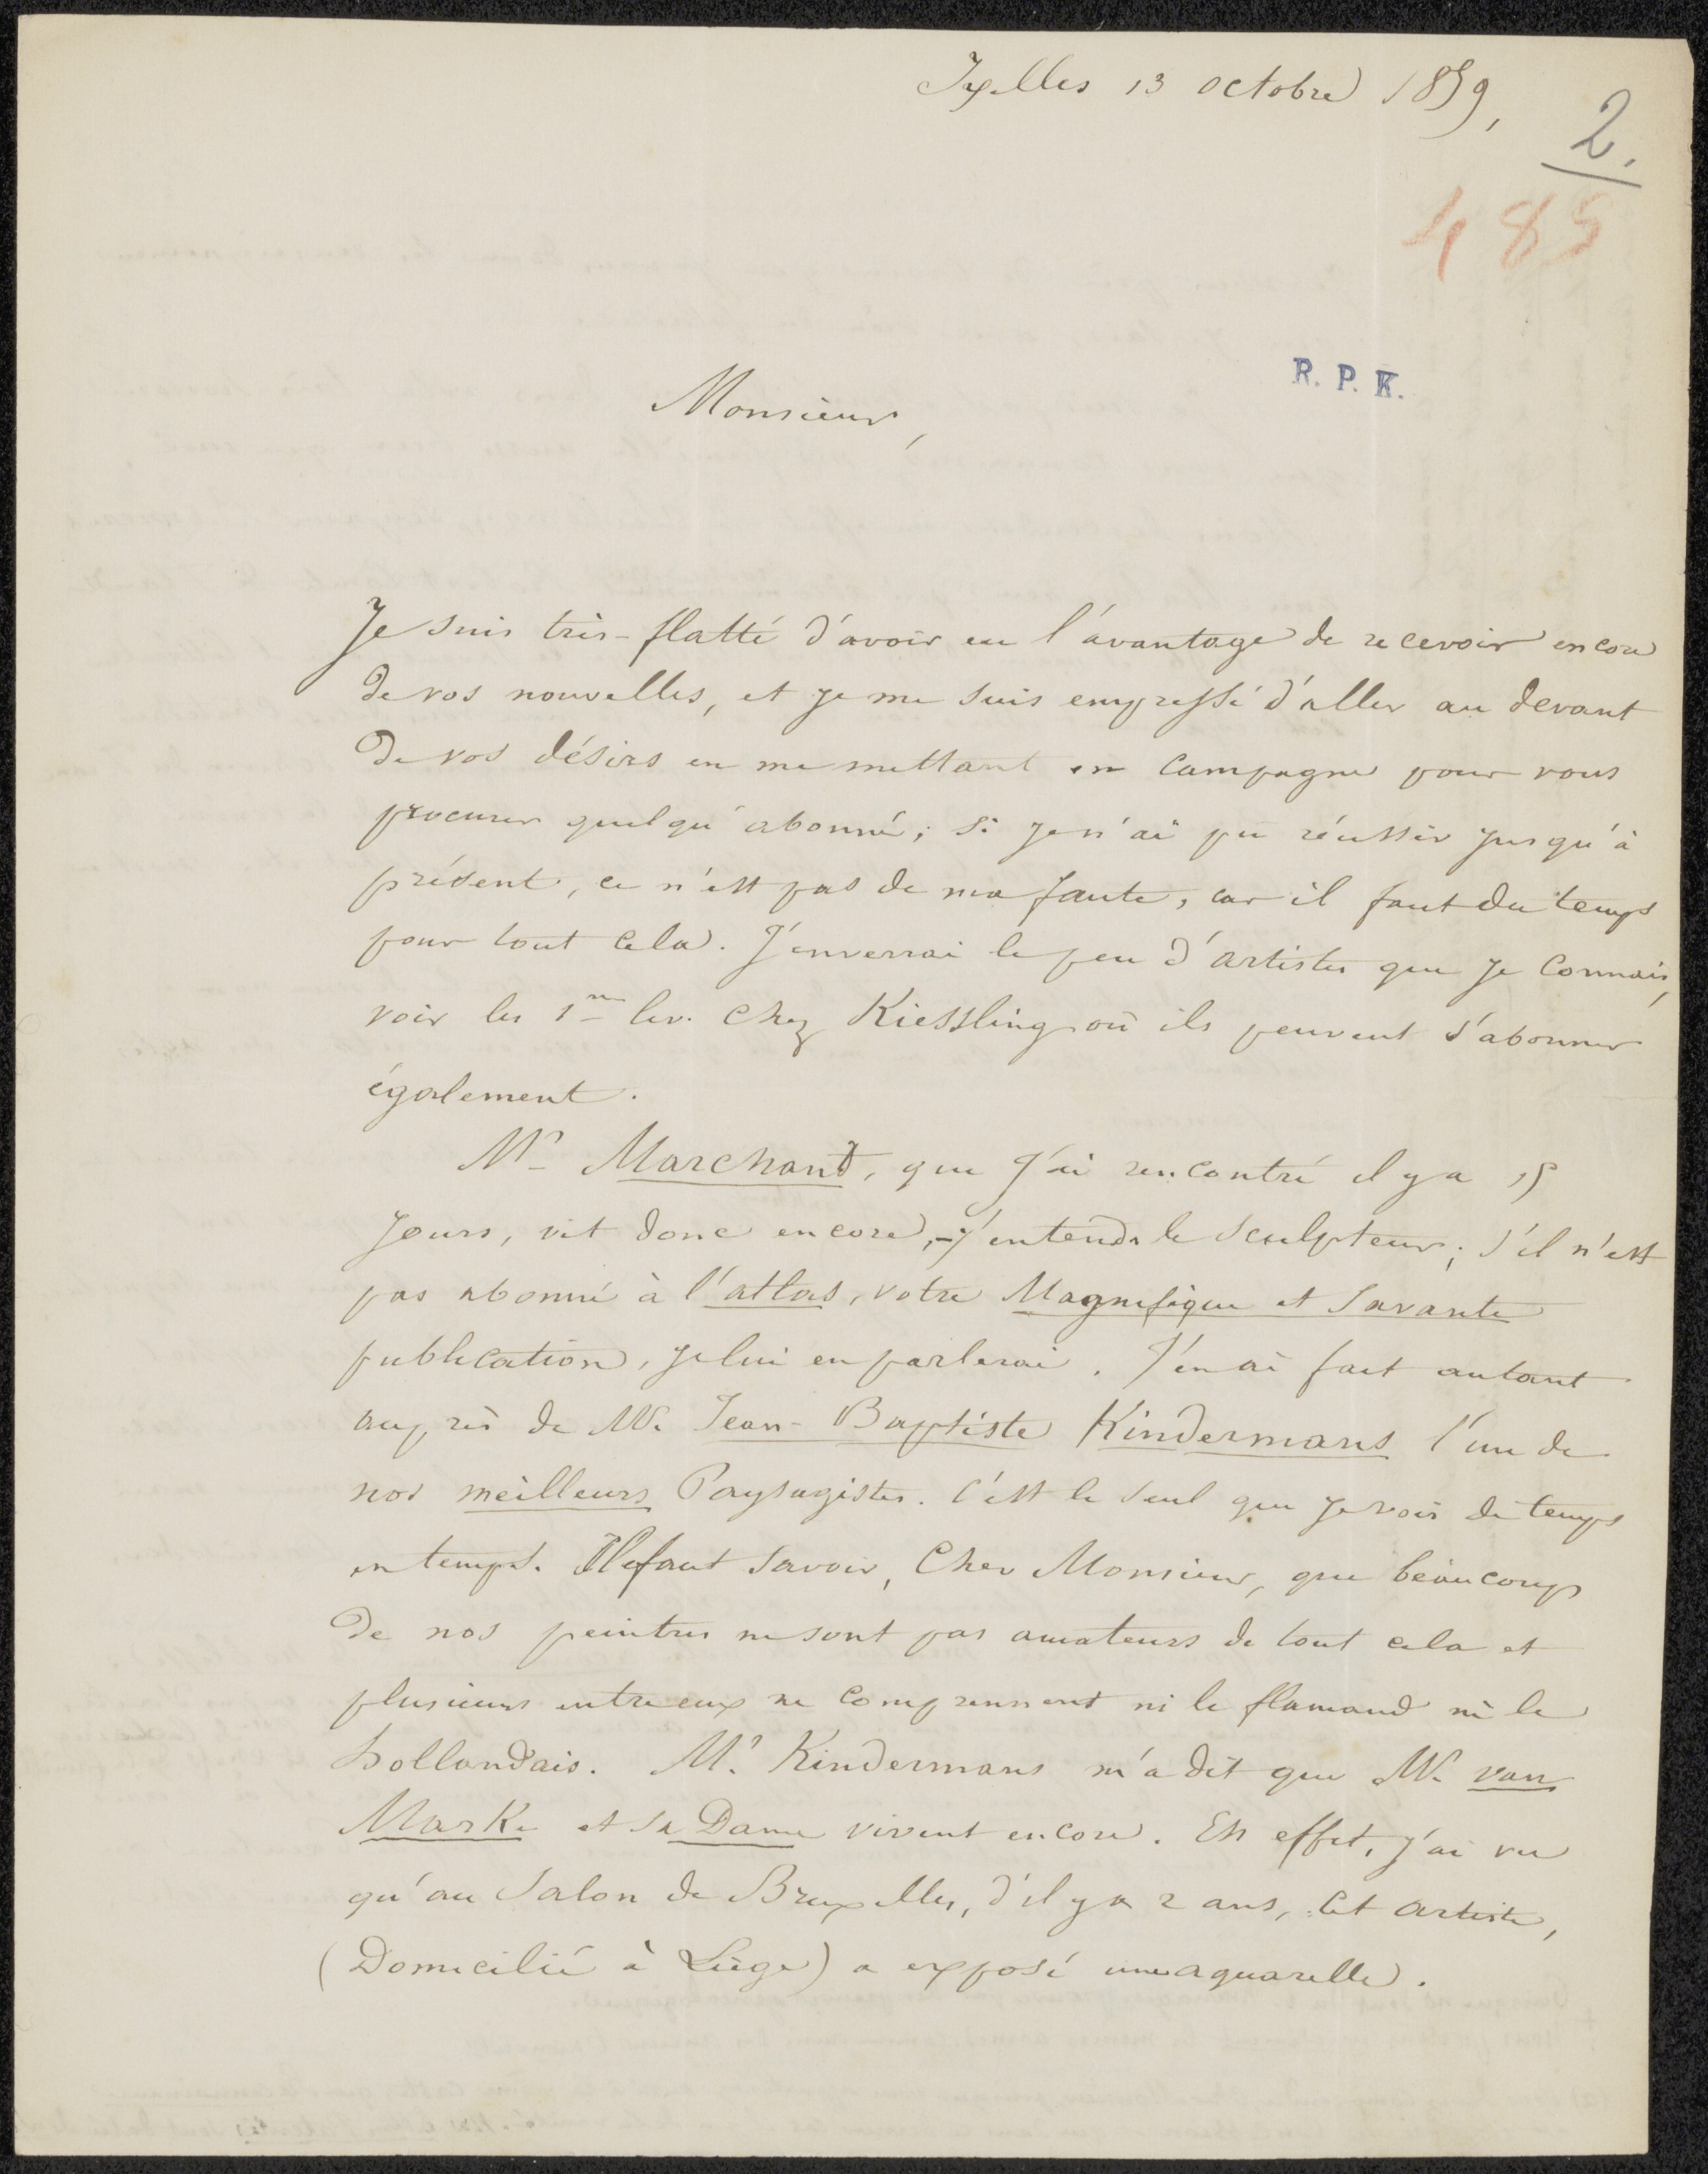 Ixelles 13 octobre 1859,
2.
485
R. P. K.
Monsieur,
Je suis très-flatté d'avoir eu l'avantage de recevoir encore
de vos nouvelles, et je me suis empressé d'aller au devant
de vos désirs en me mettant en campagne pour vous
procurer quelqu'abonné; si je n'ai pu réussir jusqu'à
présent, ce n'est pas de ma faute, car il faut du temps
pour tout cela. J'enverrai le peu d'artistes que je connais,
voir les 1res liv. chez Kiessling où ils peuvent s'abonner
également.
Mr Marchand, que j'ai rencontré il y a 15
jours, vit donc encore, - j'entends le sculpteur; s'il n'est
pas abonné à l'atlas, votre Magnifique et Savante
publication, je lui en parlerai. J'en ai fait autant
auprès de Mr. Jean-Baptiste Kindermans l'un de
nos meilleurs Paysagistes. C'est le seul que je vois de temps
en temps. Il faut savoir, Cher Monsieur, que beaucoup
de nos peintres ne sont pas amateurs de tout cela et
plusieurs entre eux ne comprennent ni le flamand ni le
hollandais. Mr. Kindermans m'a dit que Mr. van
Marke et sa Dame vivent encore. En effet, j'ai vu
qu'au Salon de Bruxelles, d'il y a 2 ans, cet artiste,
(Domicilié à Liège) a exposé une aquarelle.